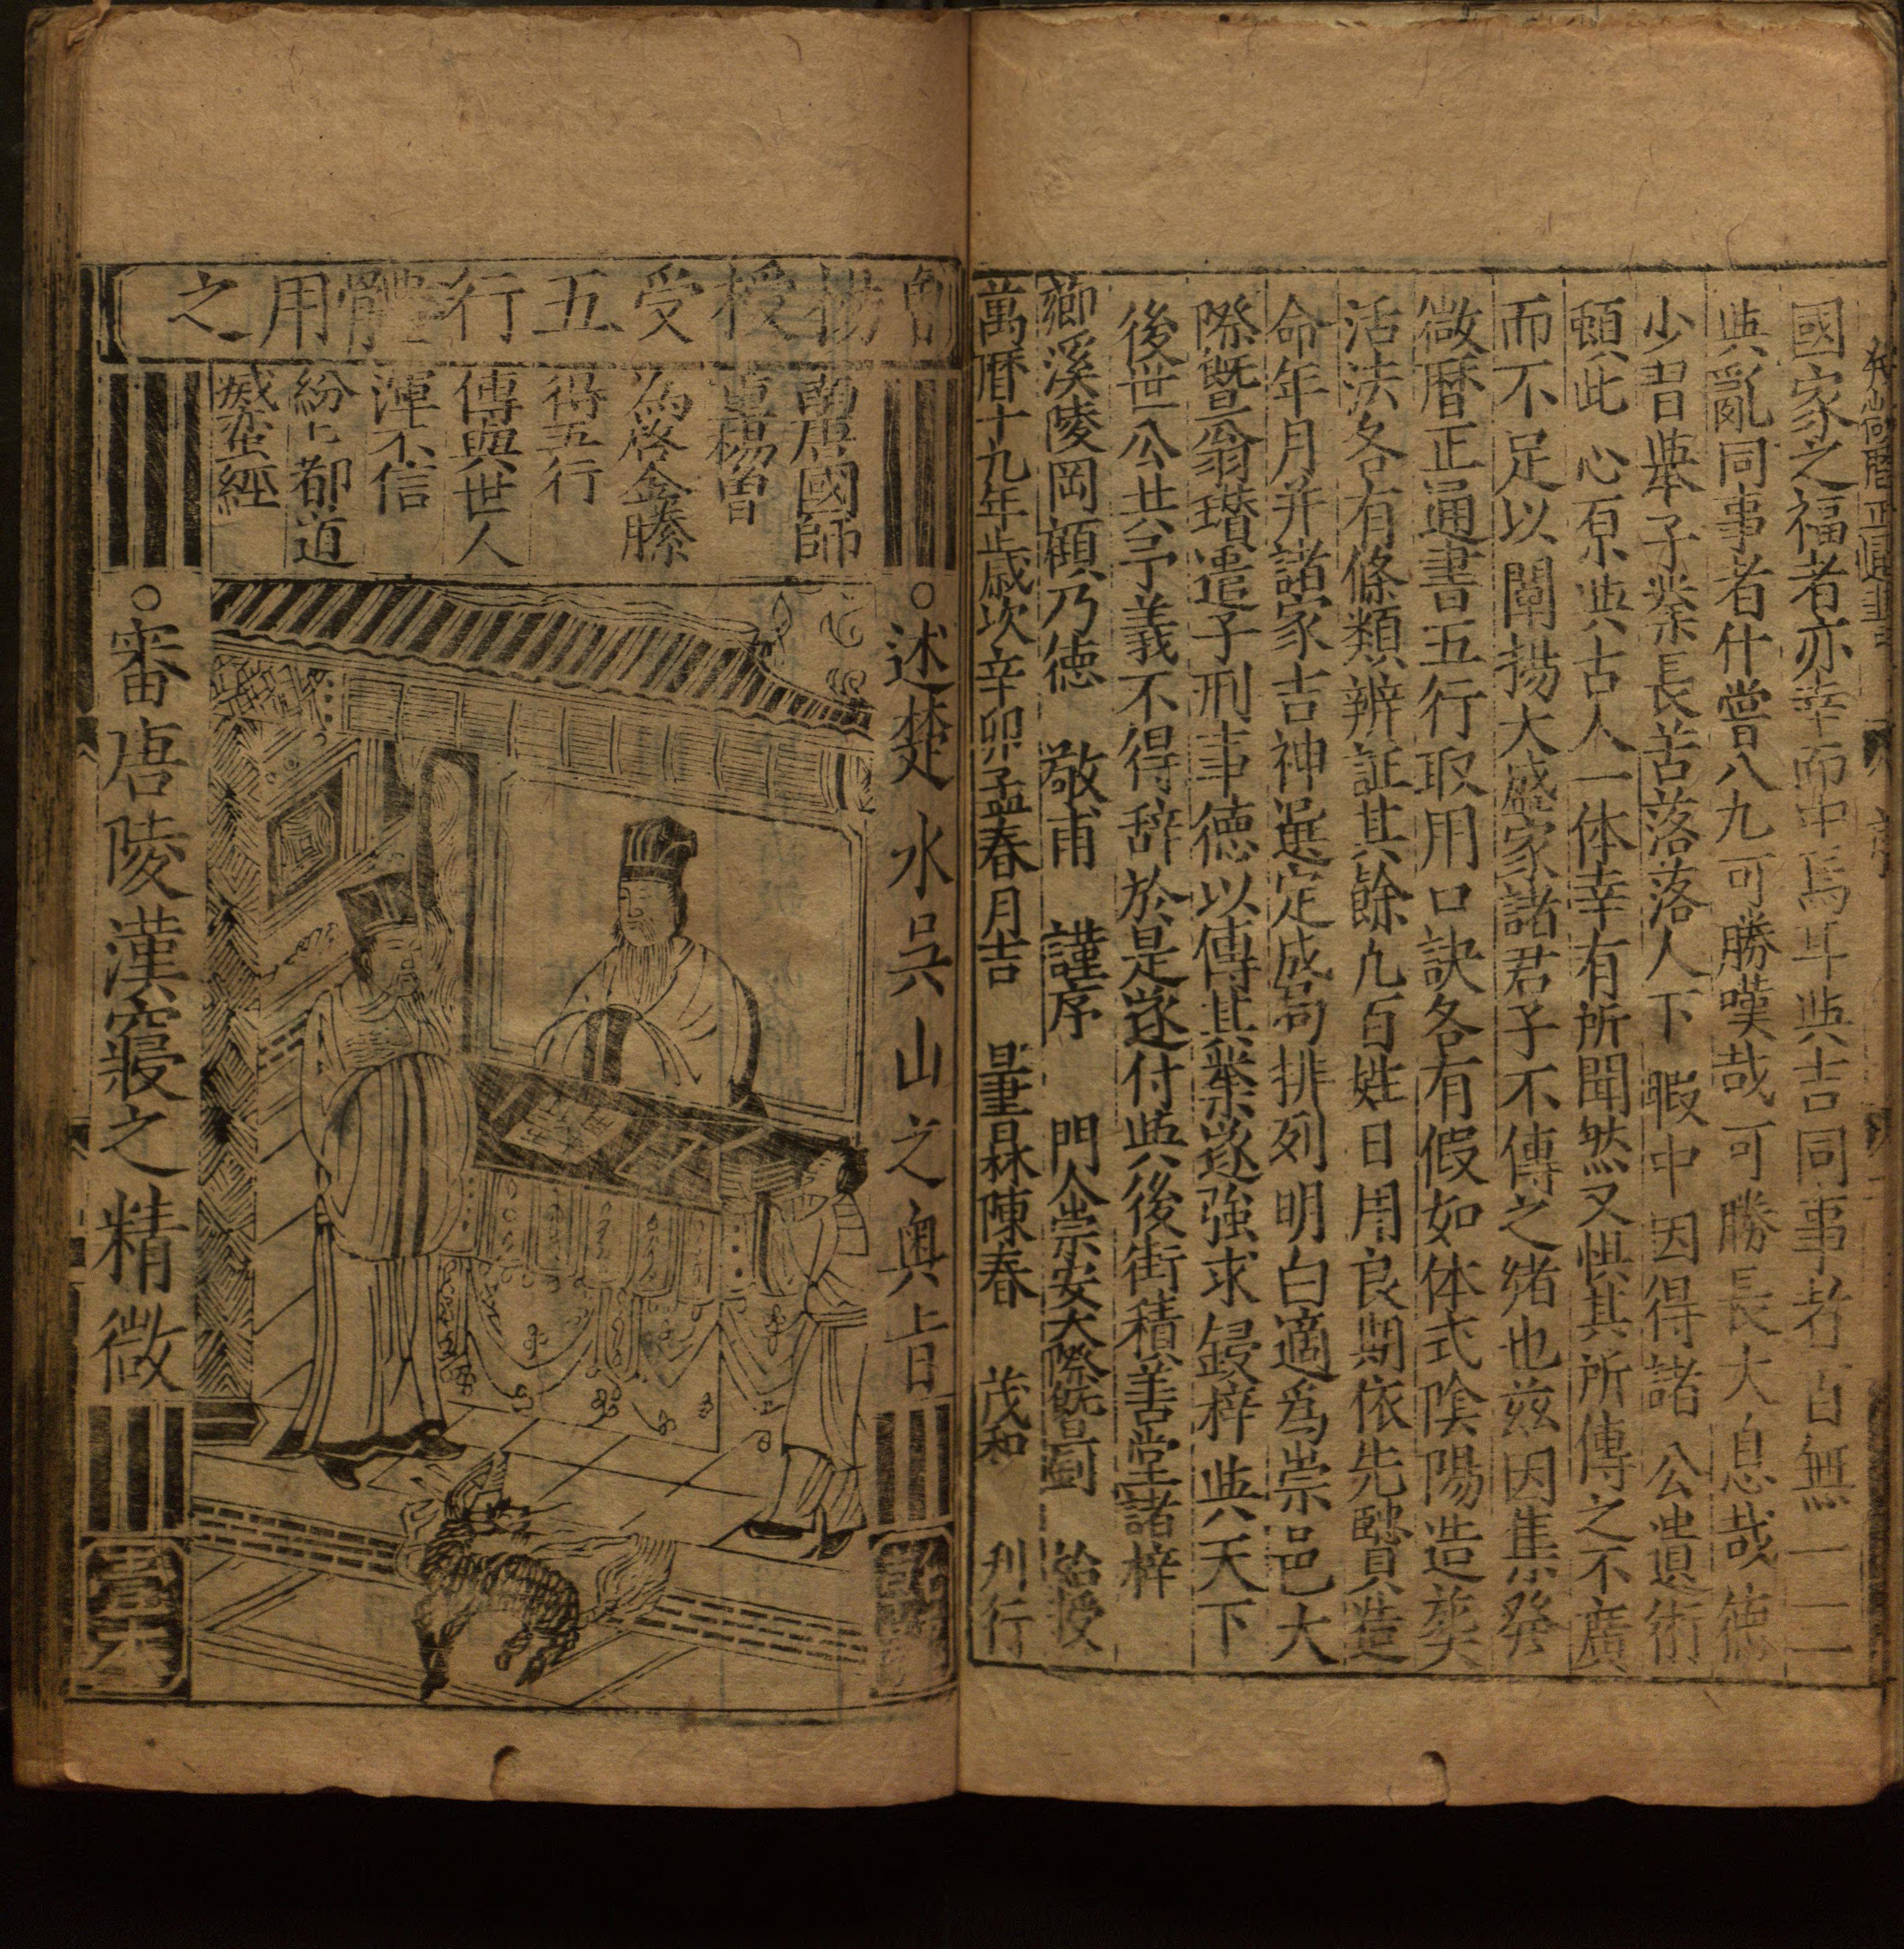 國家之福者亦幸而中焉耳與吉同事者百無一二
與亂同事者什嘗八九可勝嘆哉可勝長大息哉德
少習舉子業長苦落落人下 暇中因得諸 公遺術
頓此 心原與古人一体幸有所聞然又惧其所傳之不廣
而不足以闡揚大盛家諸君子不傳之緒也兹因集發
微曆正通書五行取用口訣各有假如体式陰陽造葬
活法各有條類辨証其餘凢百姓日用良期依先賢造
命年月并諸家吉神選定成局排列明白適爲崇邑大
際曁翁瑨遣子刑事德以傳其業遂強求鋟梓與天下
後世公共予義不得辞於是遂付與後街積善堂諸梓
薌溪陵岡顧乃德 敬甫 謹序 門人崇安大際曁 給授
萬曆十九年歲次辛卯孟春月吉 書林陳春 茂和 刋行
楊授受五行體用之
○述楚水吳山之奥旨
國師
楊曽
為啓金縢
得五行
傳與世人
渾不信
紛〻都道
經
○審唐陵漢寢之精微